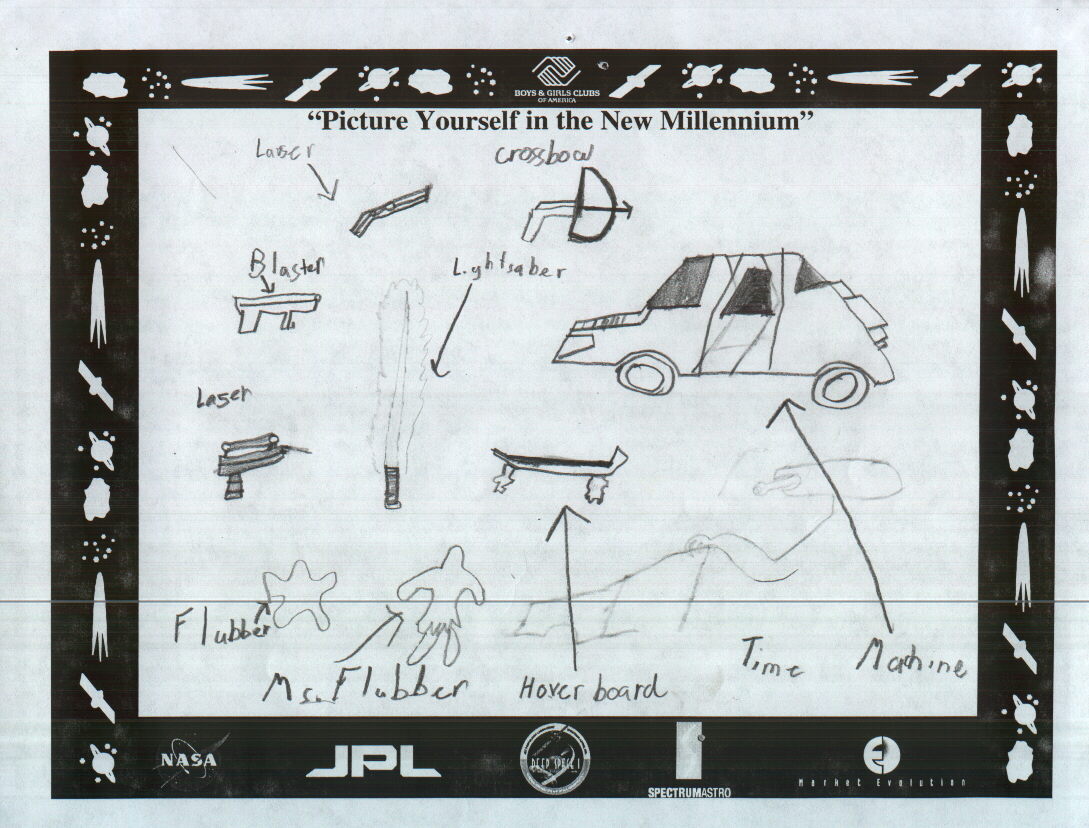 BOYS & GIRLS CLUBS
OF AMERICA
“Picture Yourself in the New Millennium”
Laser
crossbow
Blaster
Lightsaber
Laser
Flubber
Ms. Flubber
Hover board
Time Machine
NASA
JPL
DEEP SPACE 1
SPECTRUMASTRO
Market Evolution